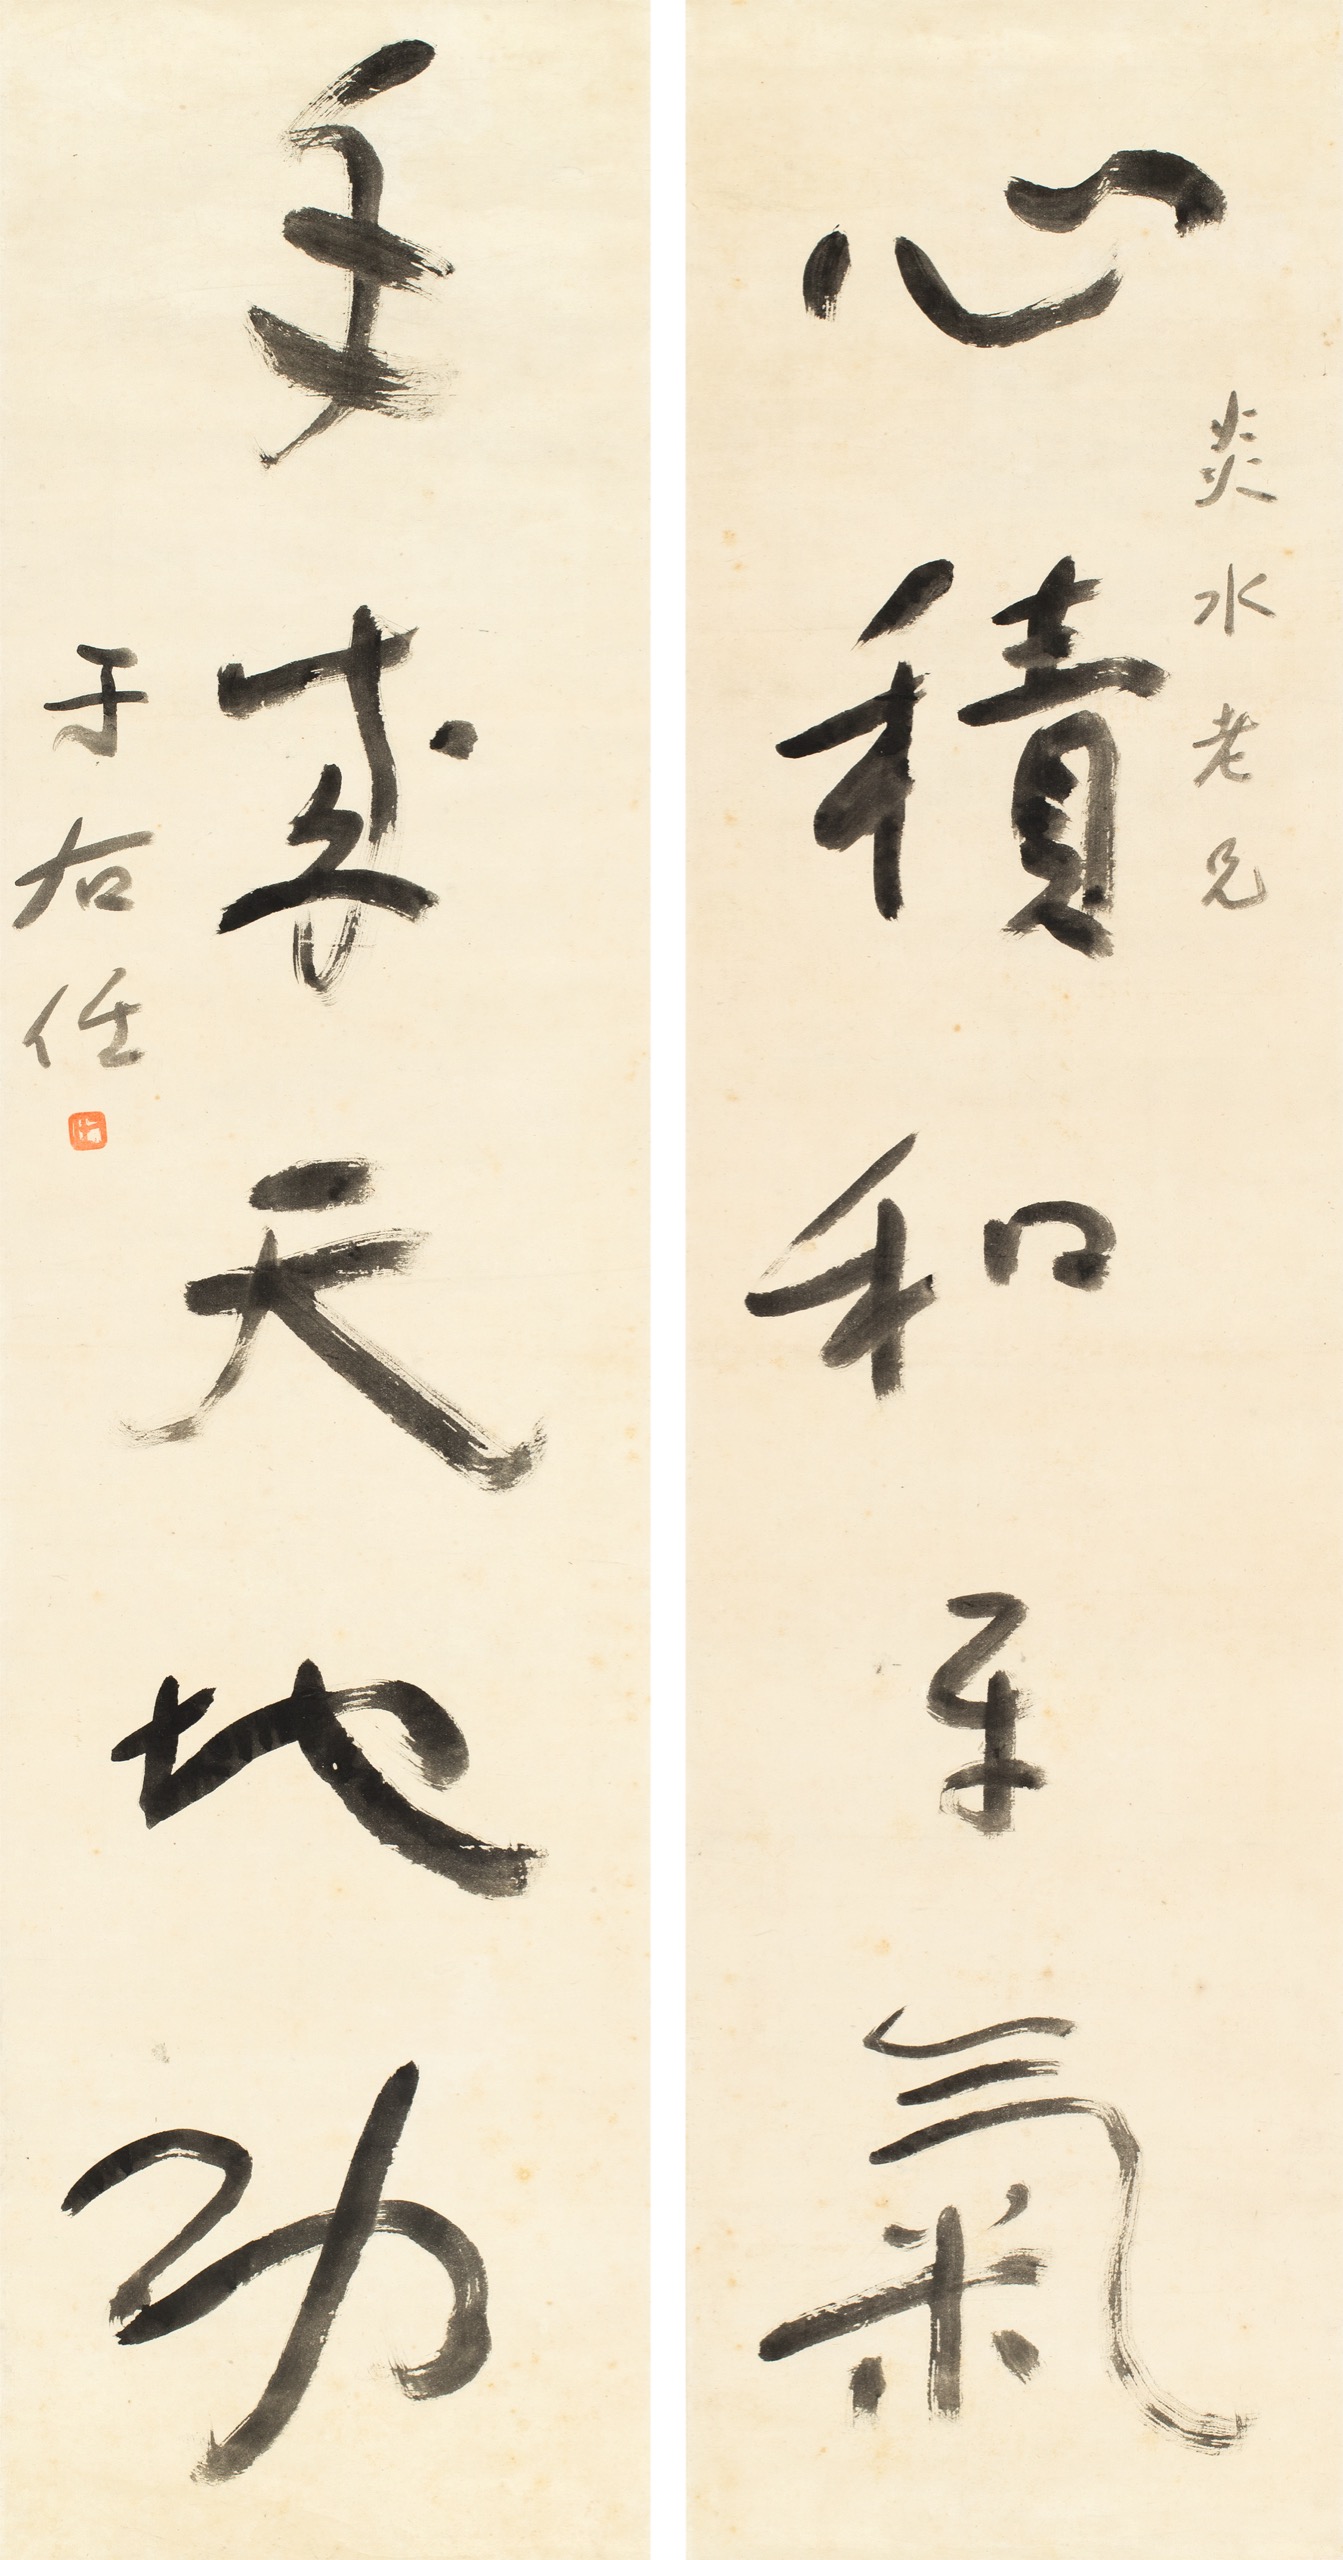 心積和平氣
炎水老兄
手成天地功
于右任